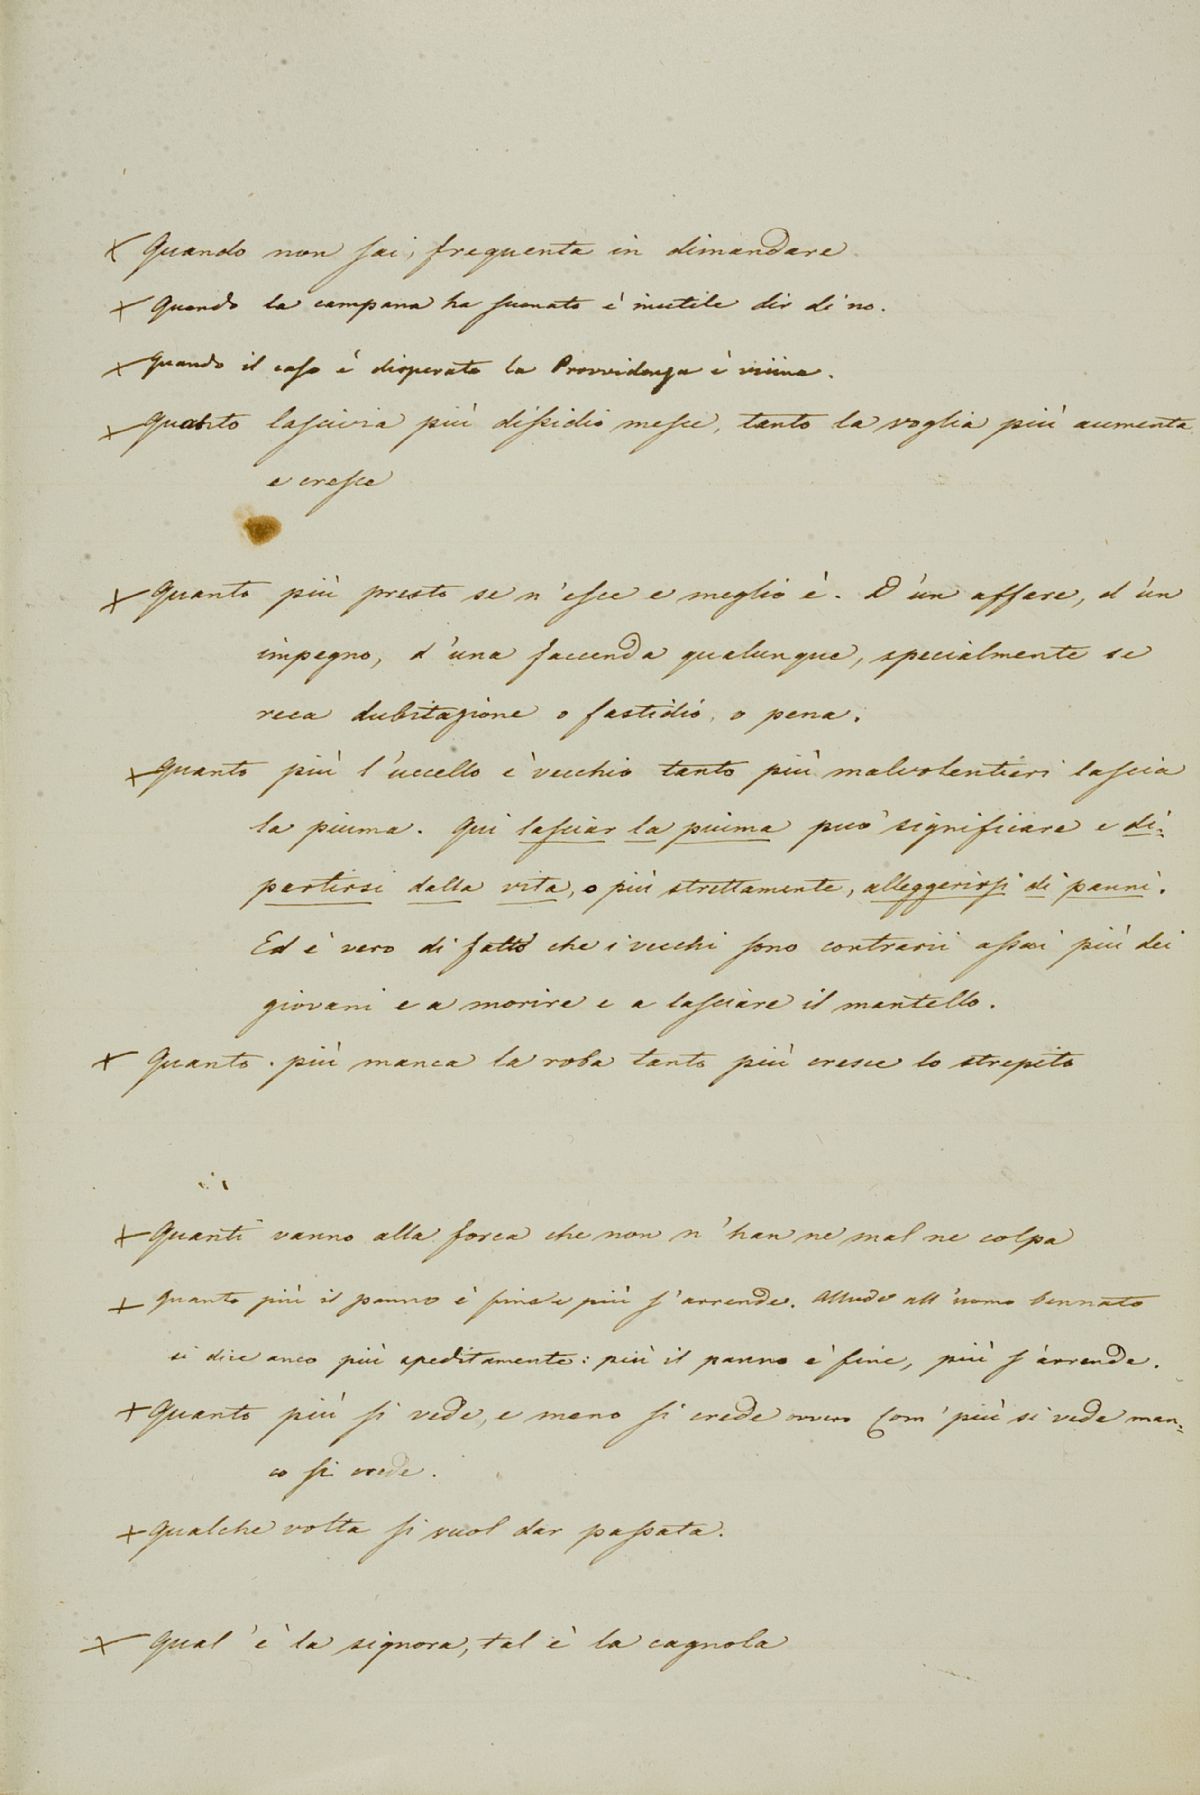 + Quando non sai, frequenta in dimandare
+ Quando la campana ha suonato è inutile dir di no.
+ Quando il caso è disperato la Provvidenza è vicina.
+ Quanto lascivia più dissidio mesce, tanto la voglia più aumenta
e cresce
+ Quanto più presto se n'esce e meglio è. D'un affare, d'un
impegno, d'una faccenda qualunque, specialmente se
reca dubitazione o fastidio, o pena.
+ Quanto più l'uccello è vecchio tanto più malvolentieri lascia
la piuma. Qui lasciar la piuma può significare e di-
partirsi dalla vita, o più strettamente, alleggerirsi di panni.
Ed è vero di fatto che i vecchi sono contrarii assai più dei
giovani e a morire e a lasciare il mantello.
+ Quanto più manca la roba tanto più cresce lo strepito
+ Quanti vanno alla forca che non n'han ne mal ne colpa
+ Quanto più il panno è fine e più s'arrende. Allude all'uomo bennato
si dice anco più speditamente: più il panno è fine, più s'arrende.
+ Quanto più si vede, e meno si crede ovvero Com' più si vede man-
co si crede.
+ Qualche volta si vuol dar passata.
+ Qual' è la signora, tal è la cagnola